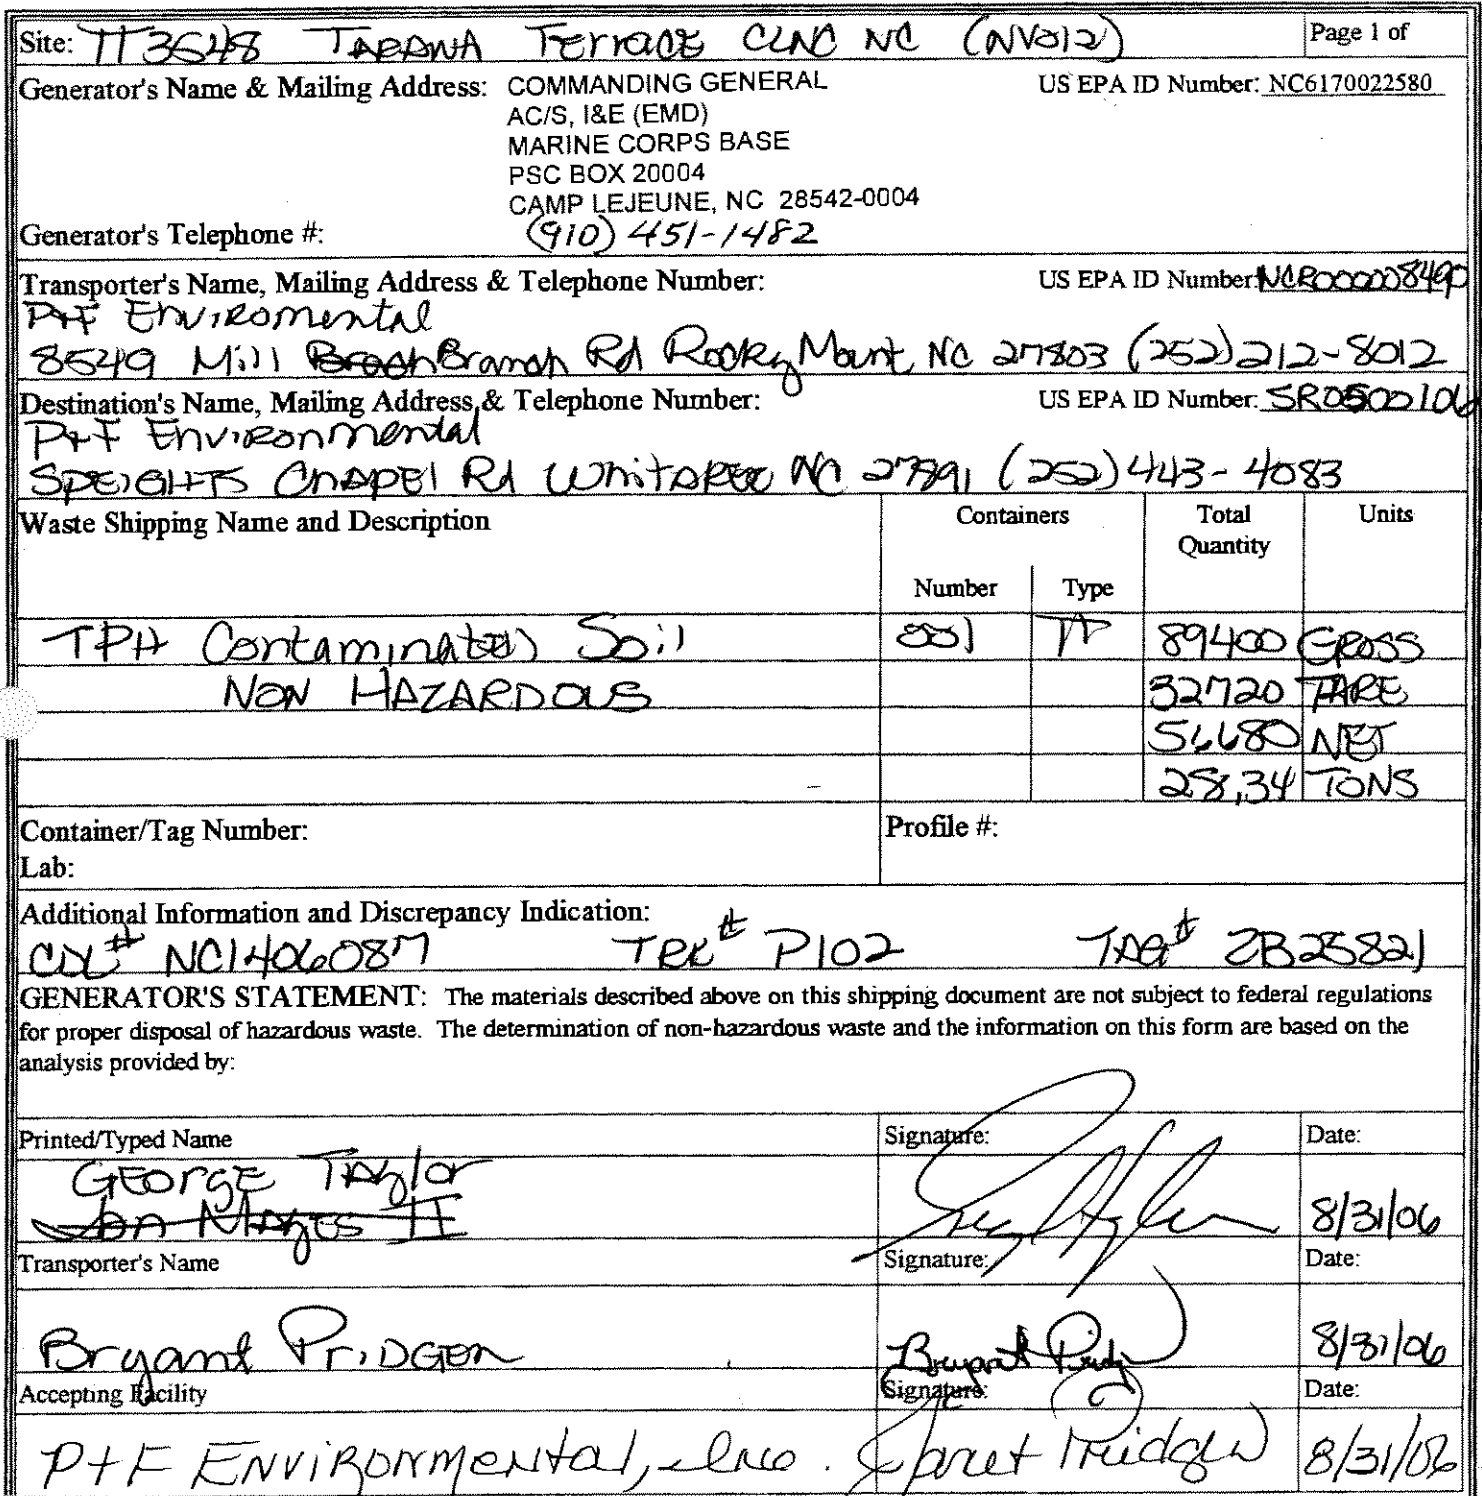 Site: TT3548 TARAWA Terrace CLNC NC (NV012) Page 1 of
Generator's Name & Mailing Address: COMMANDING GENERAL US EPA ID Number: NC6170022580
AC/S, I&E (EMD)
MARINE CORPS BASE
PSC BOX 20004
CAMP LEJEUNE, NC 28542-0004
Generator's Telephone #: (910) 451-1482
Transporter's Name, Mailing Address & Telephone Number: US EPA ID Number: NCR000008490
P+F Enviromental
8549 Mill Branch Rd Rocky Mount, NC 27803 (252) 212-8012
Destination's Name, Mailing Address, & Telephone Number: US EPA ID Number: SR0500106
P+F Environmental
SPEIGHTS Chapel Rd NC 27891 (252) 443-4083
Waste Shipping Name and Description Containers Total Quantity Units
Number Type
TPH Contaminated Soil 001 89400 GROSS
NON HAZARDOUS 32720 TARE
56680 NET
28,34 TONS
Container/Tag Number: Profile #:
Lab:
Additional Information and Discrepancy Indication:
CDL# NC1406087 TRK# P102 TAG# ZB25821
GENERATOR'S STATEMENT: The materials described above on this shipping document are not subject to federal regulations
for proper disposal of hazardous waste. The determination of non-hazardous waste and the information on this form are based on the
analysis provided by:
Printed/Typed Name Signature: Date:
GEORGE Taylor
Jon Mayes II 8/31/06
Transporter's Name Signature: Date:
Bryant Pridgen Bryant Pridgen 8/31/06
Accepting Facility Signature: Date:
P+F Environmental, Inc. Janet Pridgen 8/31/06